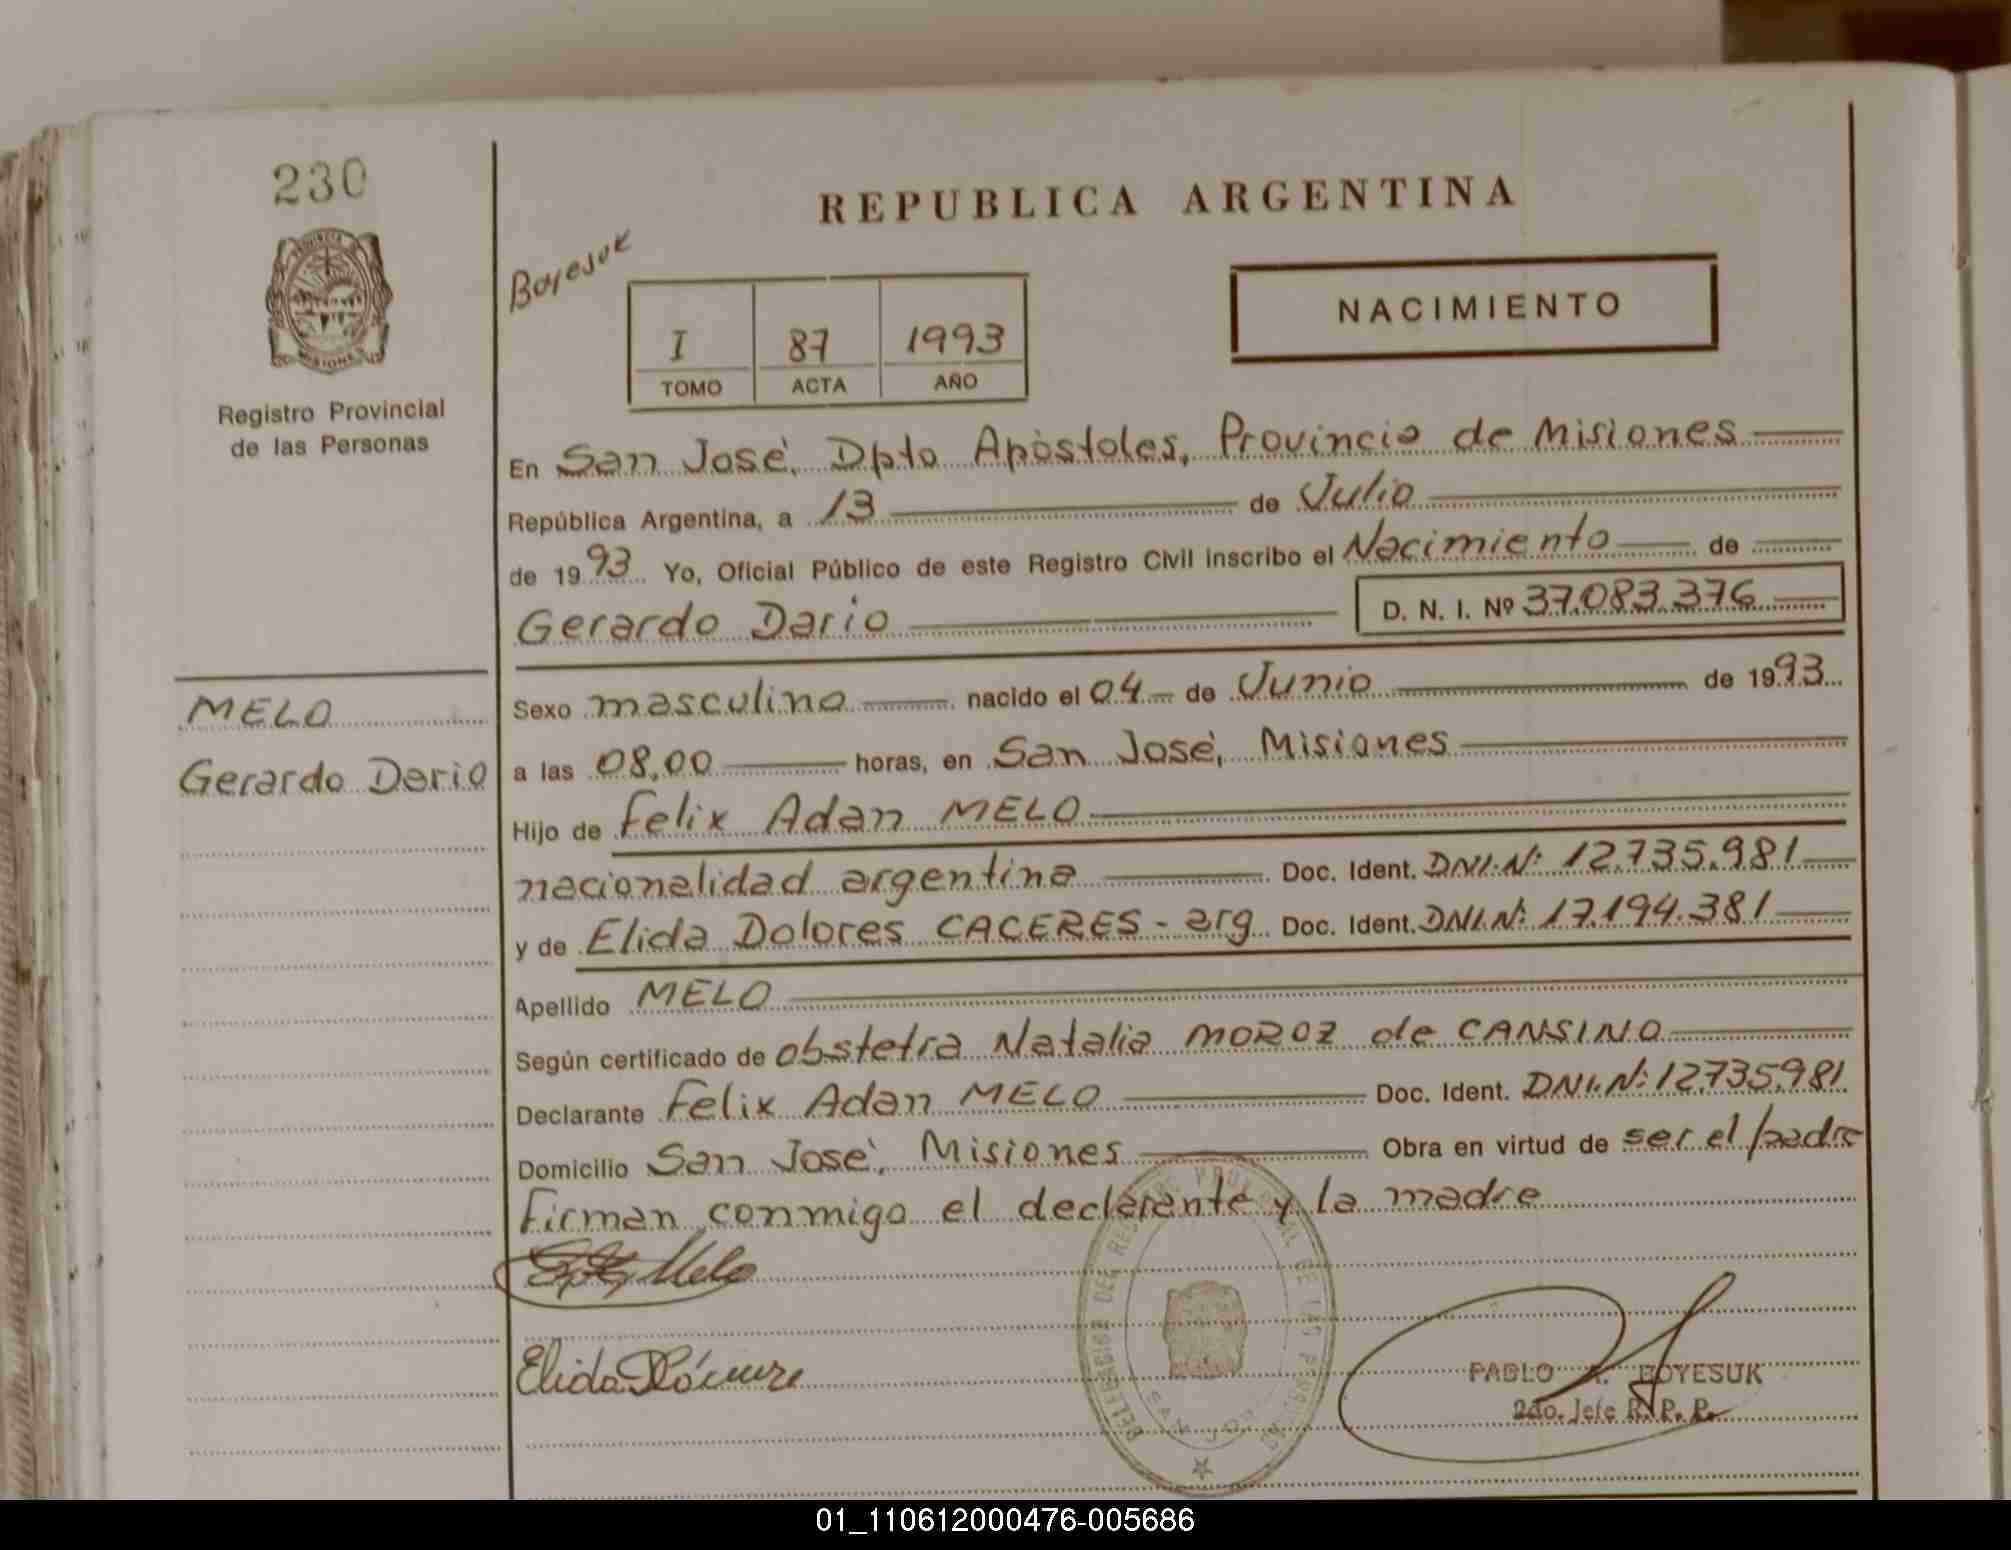 230
REPUBLICA ARGENTINA
Registro Provincial
de las Personas
Boyesuk
I 87 1993
TOMO ACTA AÑO
NACIMIENTO
En San José, Dpto Apóstoles, Provincia de Misiones
República Argentina, a 13 de Julio
de 1993 Yo, Oficial Público de este Registro Civil inscribo el Nacimiento de
Gerardo Dario D. N. I. Nº 37.083.376
MELO
Gerardo Dario
Sexo masculino nacido el 04 de Junio de 1993
a las 08,00 horas, en San José, Misiones
Hijo de Felix Adan MELO
nacionalidad argentina Doc. Ident. DNI.Nº 12.735.981
y de Elida Dolores CACERES - arg Doc. Ident. DNI.Nº 17.194.381
Apellido MELO
Según certificado de obstetra Natalia MOROZ de CANSINO
Declarante Felix Adan MELO Doc. Ident. DNI.Nº 12.735.981
Domicilio San José, Misiones Obra en virtud de ser el padre
Firman conmigo el declarante y la madre
Melo
Elida
PABLO A. BOYESUK
2do. Jefe R. P. P.
01_110612000476-005686